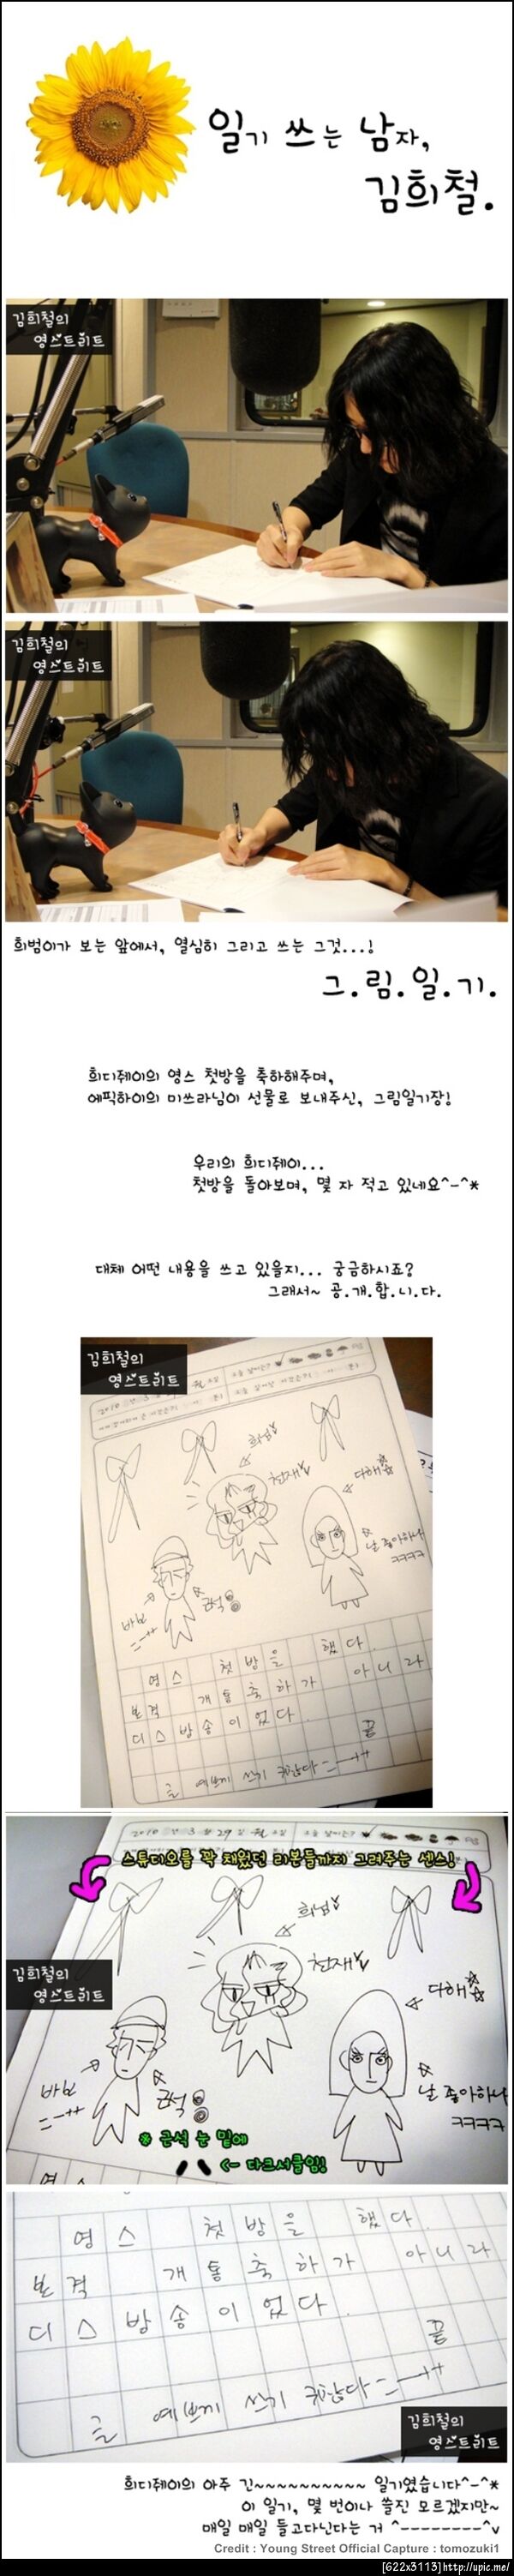 일기 쓰는 남자,
김희철.
김희철의
영스트리트
김희철의
영스트리트
희범이가 보는 앞에서, 열심히 그리고 쓰는 그것...!
그.림.일.기.
희디제이의 영스 첫방을 축하해주며,
에픽하이의 미쓰라님이 선물로 보내주신, 그림일기장!
우리의 희디제이...
첫방을 돌아보며, 몇 자 적고 있네요^-^*
대체 어떤 내용을 쓰고 있을지... 궁금하시죠?
그래서~ 공.개.합.니.다.
김희철의
영스트리트
희님
천재
다해
날 좋아하나
ㅋㅋㅋㅋ
바보
근석
영스 첫방을 했다.
본격 개통축하가 아니라
디스방송이었다.
끝
글 예쁘게 쓰기 귀찮다
2010 년 3 월 29 일 월 요일
스튜디오를 꽉 채웠던 리본들까지 그려주는 센스!
김희철의
영스트리트
희님
천재
다해
날 좋아하나
ㅋㅋㅋㅋ
바보
근석
* 근석 눈 밑에
<- 다크서클임!
영스
영스 첫방을 했다.
본격 개통축하가 아니라
디스방송이었다.
끝
글 예쁘게 쓰기 귀찮다
김희철의
영스트리트
희디제이의 아주 긴~~~~~~~~~~ 일기였습니다^-^*
이 일기, 몇 번이나 쓸진 모르겠지만~
매일 매일 들고다닌다는 거 ^--------^v
Credit : Young Street Official Capture : tomozuki1
[622x3113]http://upic.me/